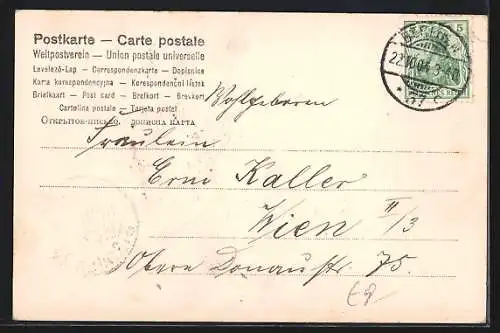 Postkarte – Carte postale
Weltpostverein – Union postale universelle
Levelező-Lap – Correspondenzkarte – Dopisnice
Karta korespondencyjna – Korespondenční lístek
Briefkaart – Post card – Brefkort – Brevkort
Cartolina postale – Tarjeta postal
Открытое письмо.
5
Wohlgeboren
Fräulein
Erni Kaller
Wien II/3
Obere Donaustr. 75.